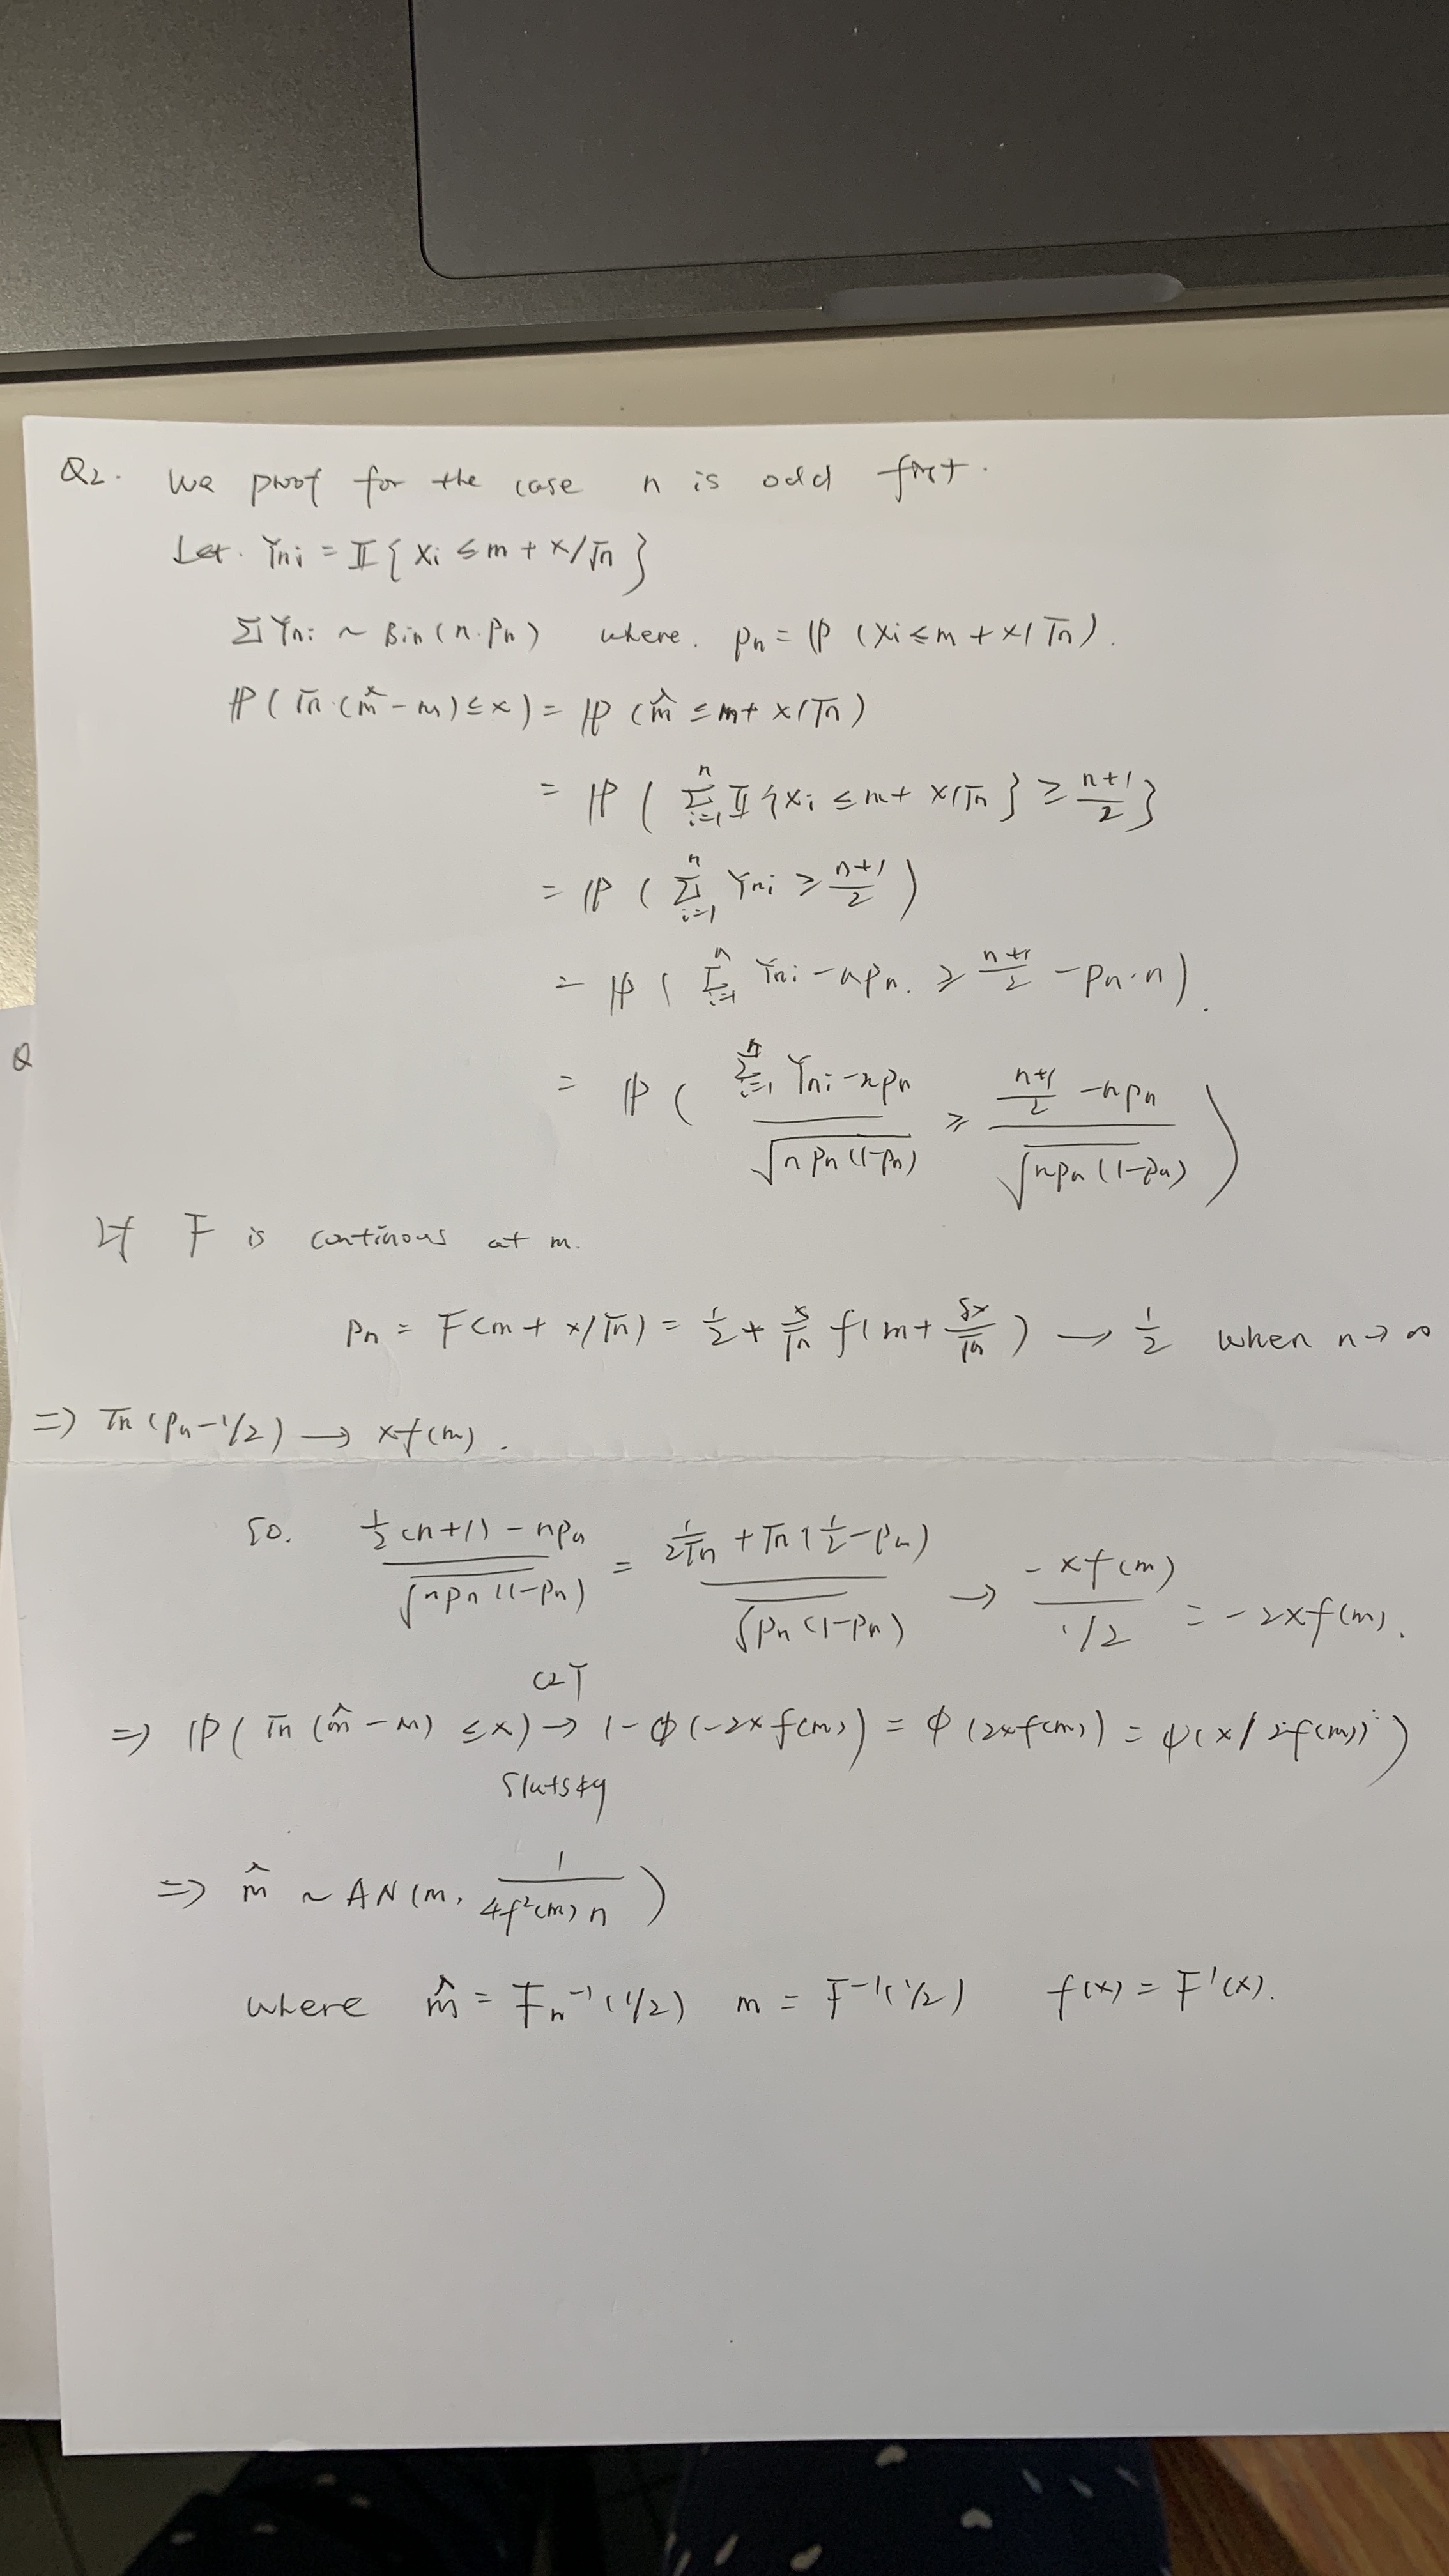 Q2. We proof for the case n is odd first.
Let. Yni = II{ Xi ≤ m + x/√n }
Σ Yni ~ Bin(n.pn) where. pn = IP (Xi ≤ m + x/√n).
IP(√n (m̂ - m) ≤ x) = IP (m̂ ≤ m + x/√n)
= IP ( Σ_{i=1}^{n} II{Xi ≤ m + x/√n } ≥ \frac{n+1}{2} }
= IP ( Σ_{i=1}^{n} Yni ≥ \frac{n+1}{2} )
= IP ( Σ_{i=1}^{n} Yni - npn. ≥ \frac{n+1}{2} - pn·n ).
Q
= IP ( \frac{Σ_{i=1}^{n} Yni - npn}{√npn(1-pn)} ≥ \frac{\frac{n+1}{2} - npn}{√npn(1-pn)} )
If F is continous at m.
pn = F(m + x/√n) = \frac{1}{2} + \frac{x}{√n} f(m + \frac{δx}{√n}) → \frac{1}{2} when n → ∞
⇒ √n (pn - 1/2) → xf(m).
So. \frac{\frac{1}{2}(n+1) - npn}{√npn(1-pn)} = \frac{\frac{1}{2√n} + √n(\frac{1}{2} - pn)}{√pn(1-pn)} → \frac{-xf(m)}{1/2} = -2xf(m).
CLT
⇒ IP( √n (m̂ - m) ≤ x) → 1 - Φ(-2xf(m)) = Φ(2xf(m)) = Φ(x/2f(m)) )
Slutsky
⇒ m̂ ~ AN(m, \frac{1}{4f²(m)n} )
where m̂ = Fn⁻¹(1/2) m = F⁻¹(1/2) f(x) = F'(x).